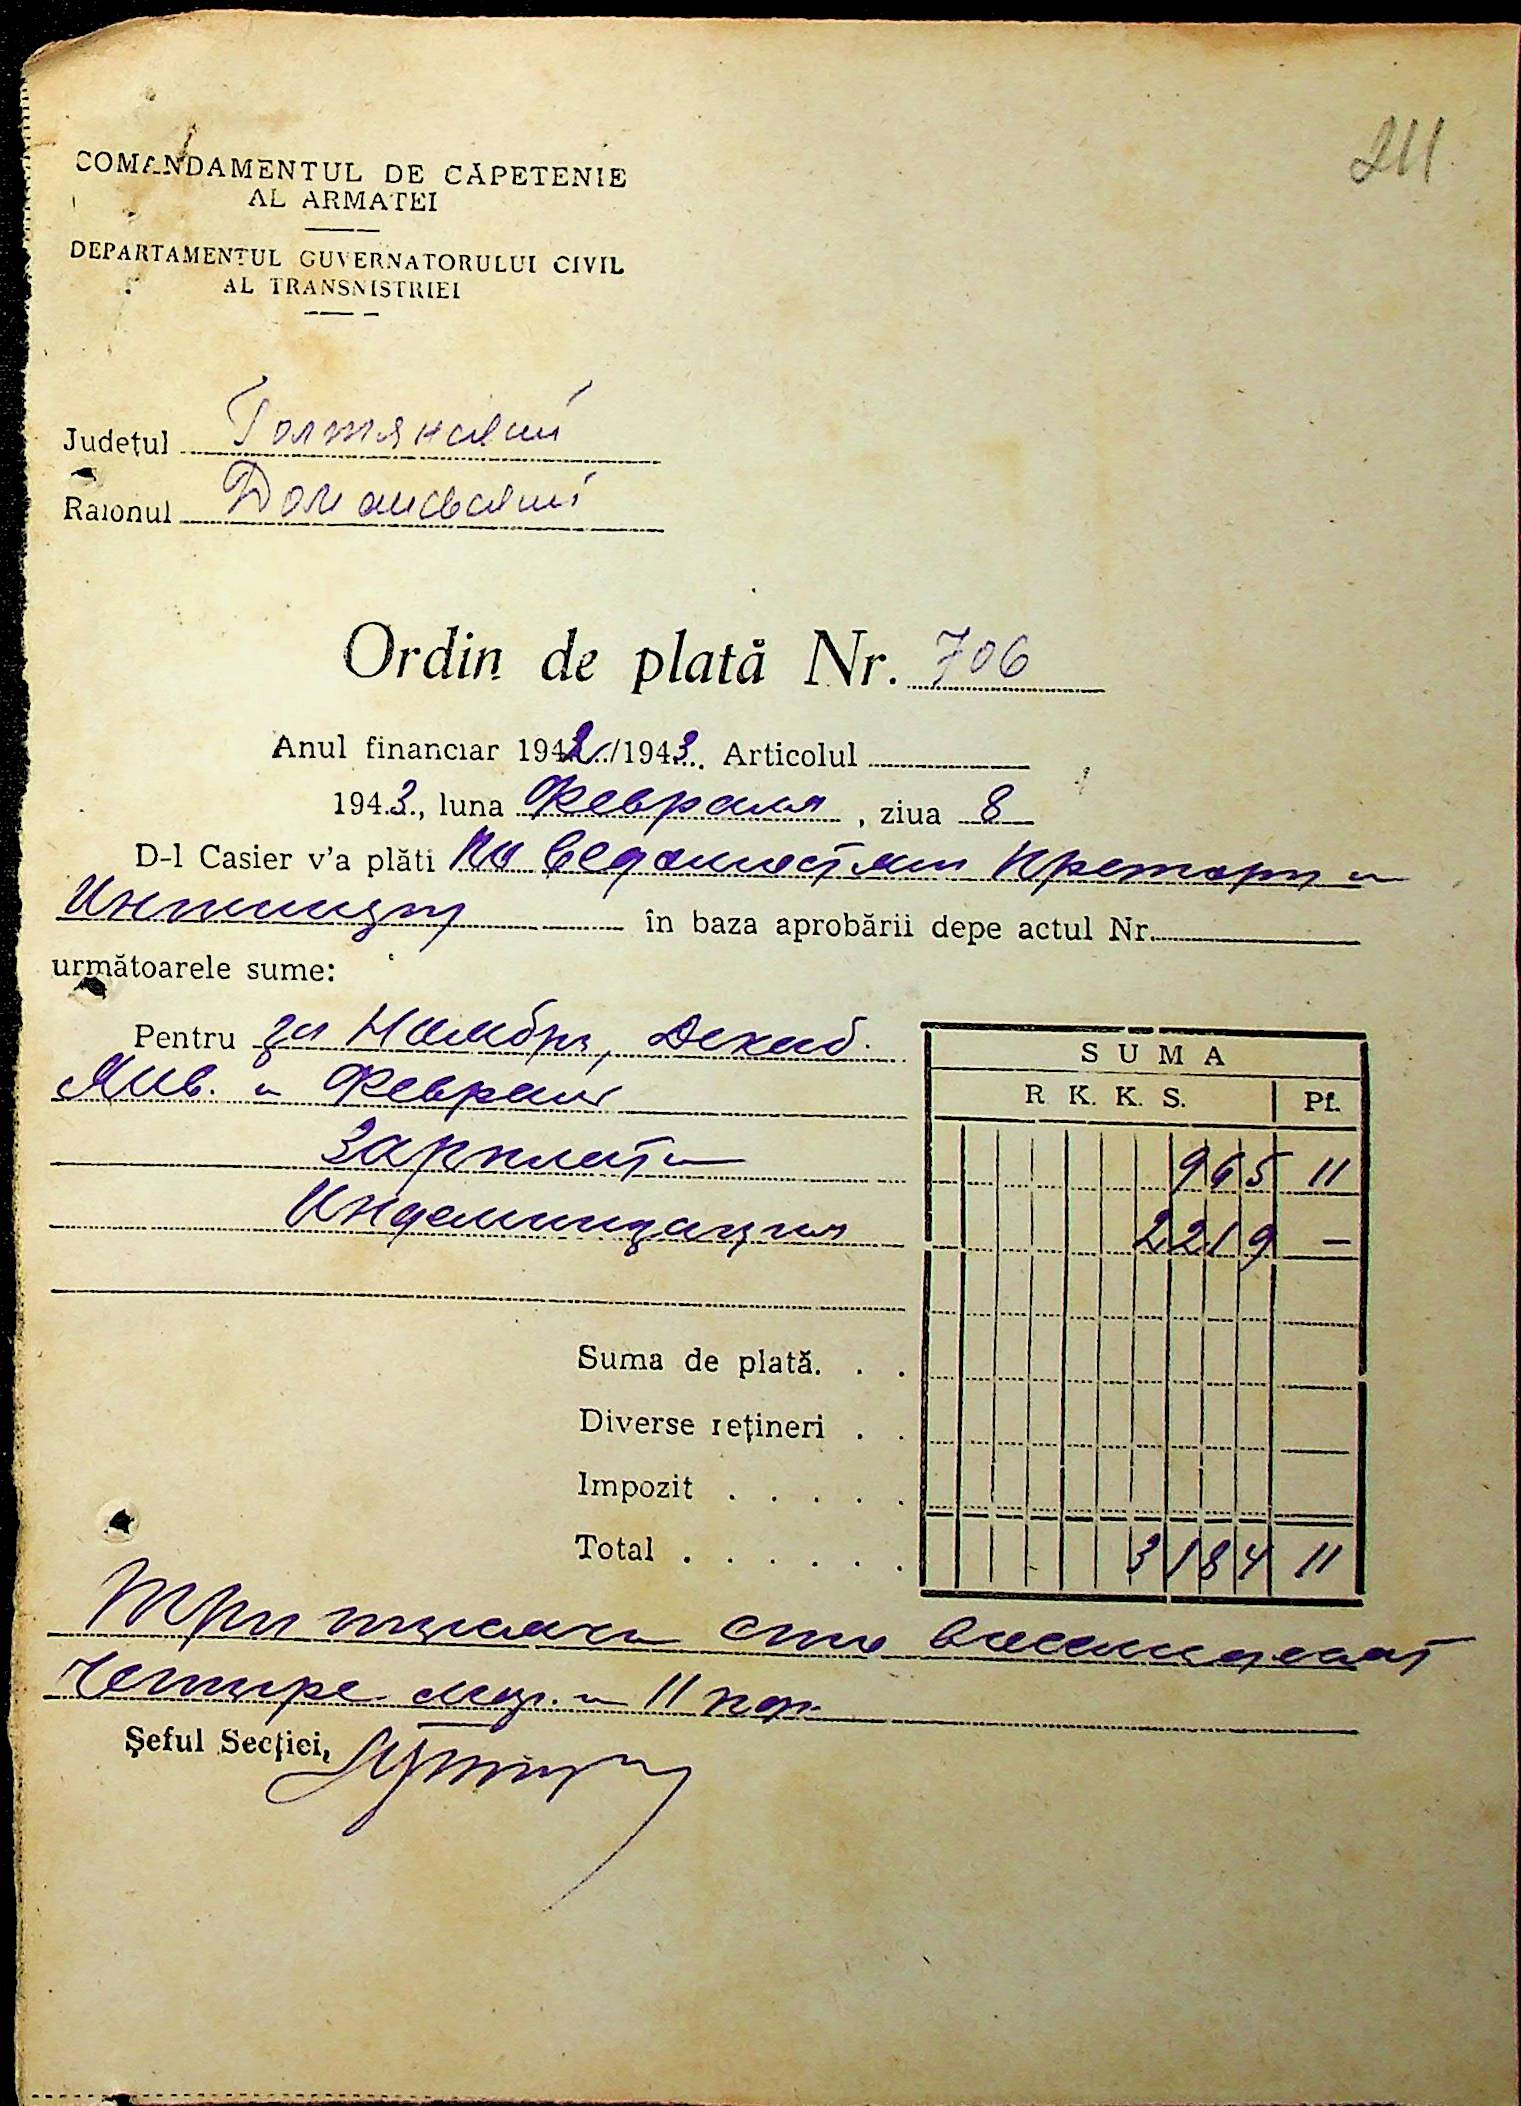 211
COMANDAMENTUL DE CĂPETENIE
AL ARMATEI
DEPARTAMENTUL GUVERNATORULUI CIVIL
AL TRANSNISTRIEI
Județul Голтянский
Raionul Доманевский
Ordin de plată Nr. 706
Anul financiar 1942/1943. Articolul
1943., luna Февраля, ziua 8
D-l Casier v'a plăti по ведомостям Претору и
în baza aprobării depe actul Nr.
următoarele sume:
Pentru за Ноябрь, Декаб.
Янв. и Февраль
SUMA
R K. K. S. Pf.
Зарплата 965 11
Индемнизация 2219 —
Suma de plată. . .
Diverse rețineri . .
Impozit . . . . .
Total . . . . . . 3184 11
Три тысячи сто восемьдесят
четыре мар. и 11 пф.
Șeful Secției,